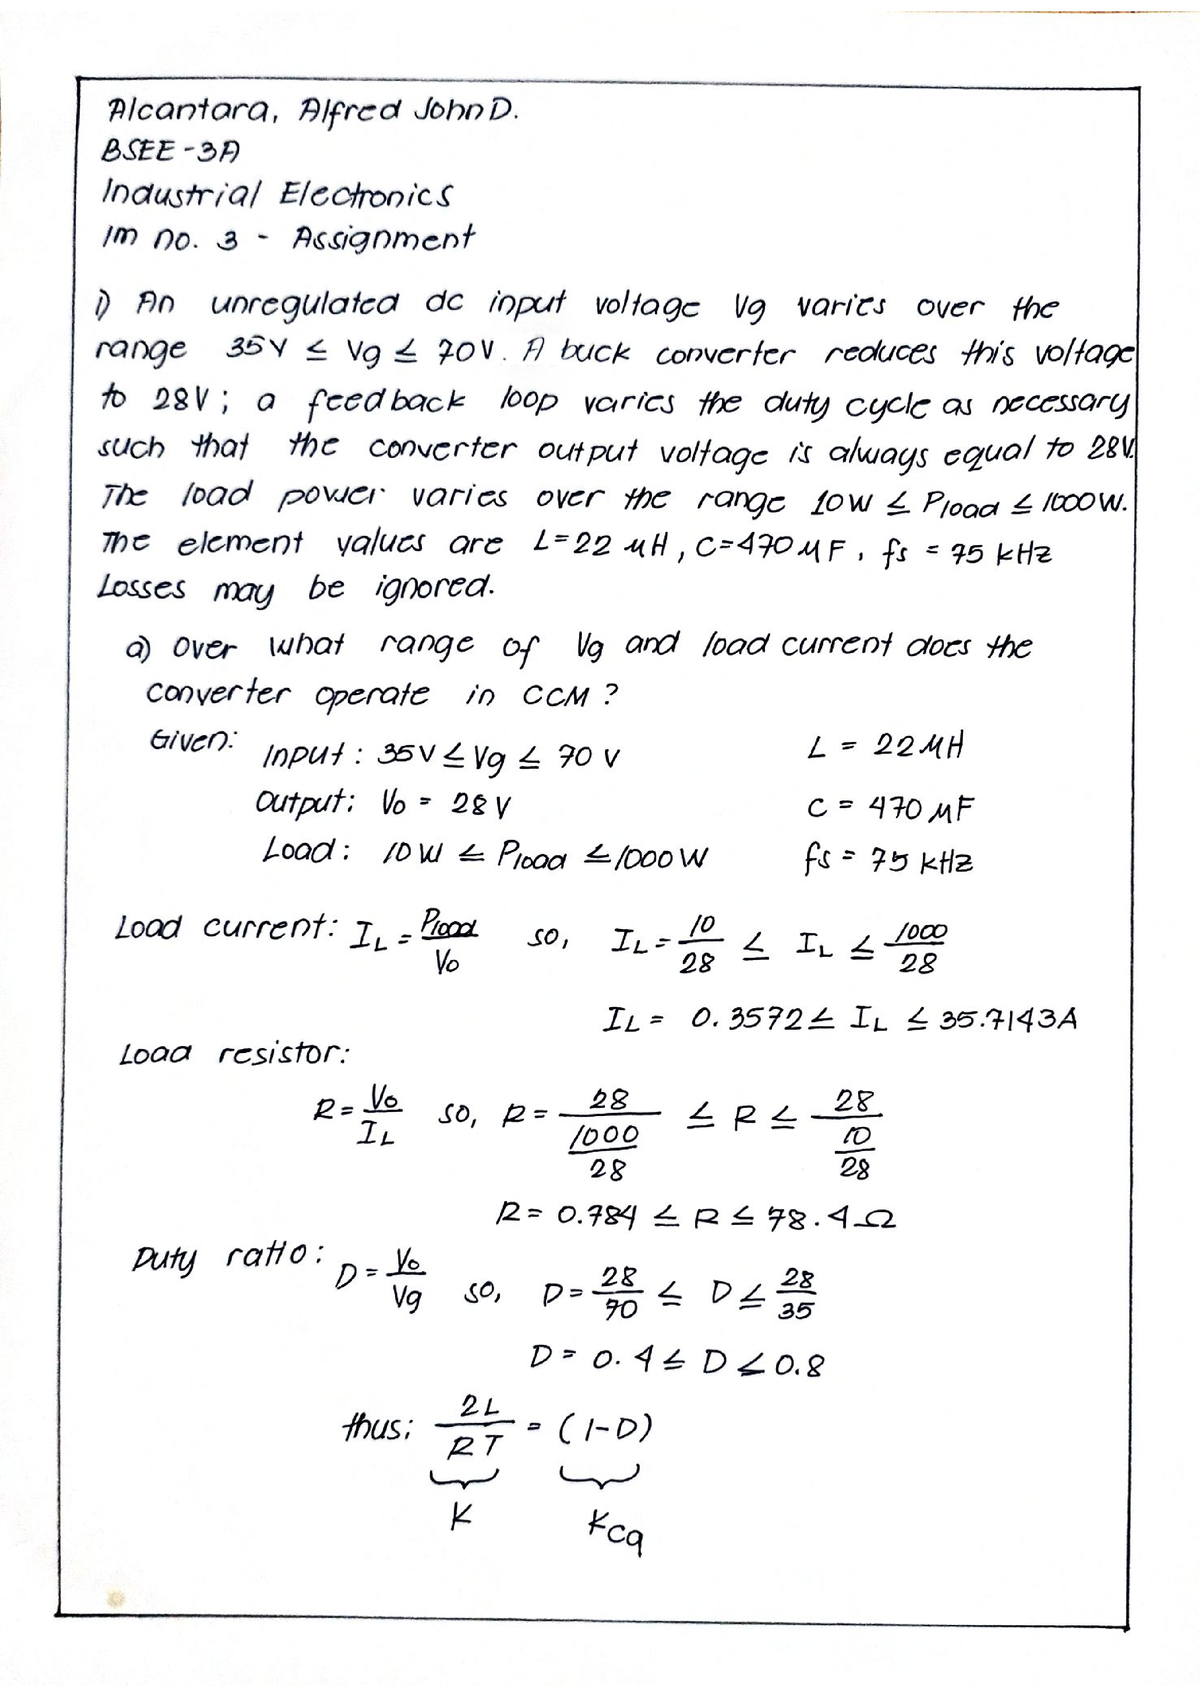 Alcantara, Alfred John D.
BSEE-3A
Industrial Electronics
IM no. 3 - Assignment
1) An unregulated dc input voltage Vg varies over the
range 35V ≤ Vg ≤ 70V. A buck converter reduces this voltage
to 28V; a feedback loop varies the duty cycle as necessary
such that the converter output voltage is always equal to 28V.
The load power varies over the range 10W ≤ Pload ≤ 1000W.
The element values are L=22 μH, C=470μF, fs = 75 kHz
Losses may be ignored.
a) Over what range of Vg and load current does the
converter operate in CCM?
Given: Input: 35V ≤ Vg ≤ 70 V L = 22μH
Output: Vo = 28 V C = 470 μF
Load: 10W ≤ Pload ≤ 1000W fs = 75 kHz
Load current: IL = Pload/Vo so, IL = 10/28 ≤ IL ≤ 1000/28
IL = 0.3572 ≤ IL ≤ 35.7143A
Load resistor:
R = Vo/IL so, R = 28/(1000/28) ≤ R ≤ 28/(10/28)
R = 0.784 ≤ R ≤ 78.4Ω
Duty ratio: D = Vo/Vg so, D = 28/70 ≤ D ≤ 28/35
D = 0.4 ≤ D ≤ 0.8
thus; 2L/RT = (1-D)
K Kcq